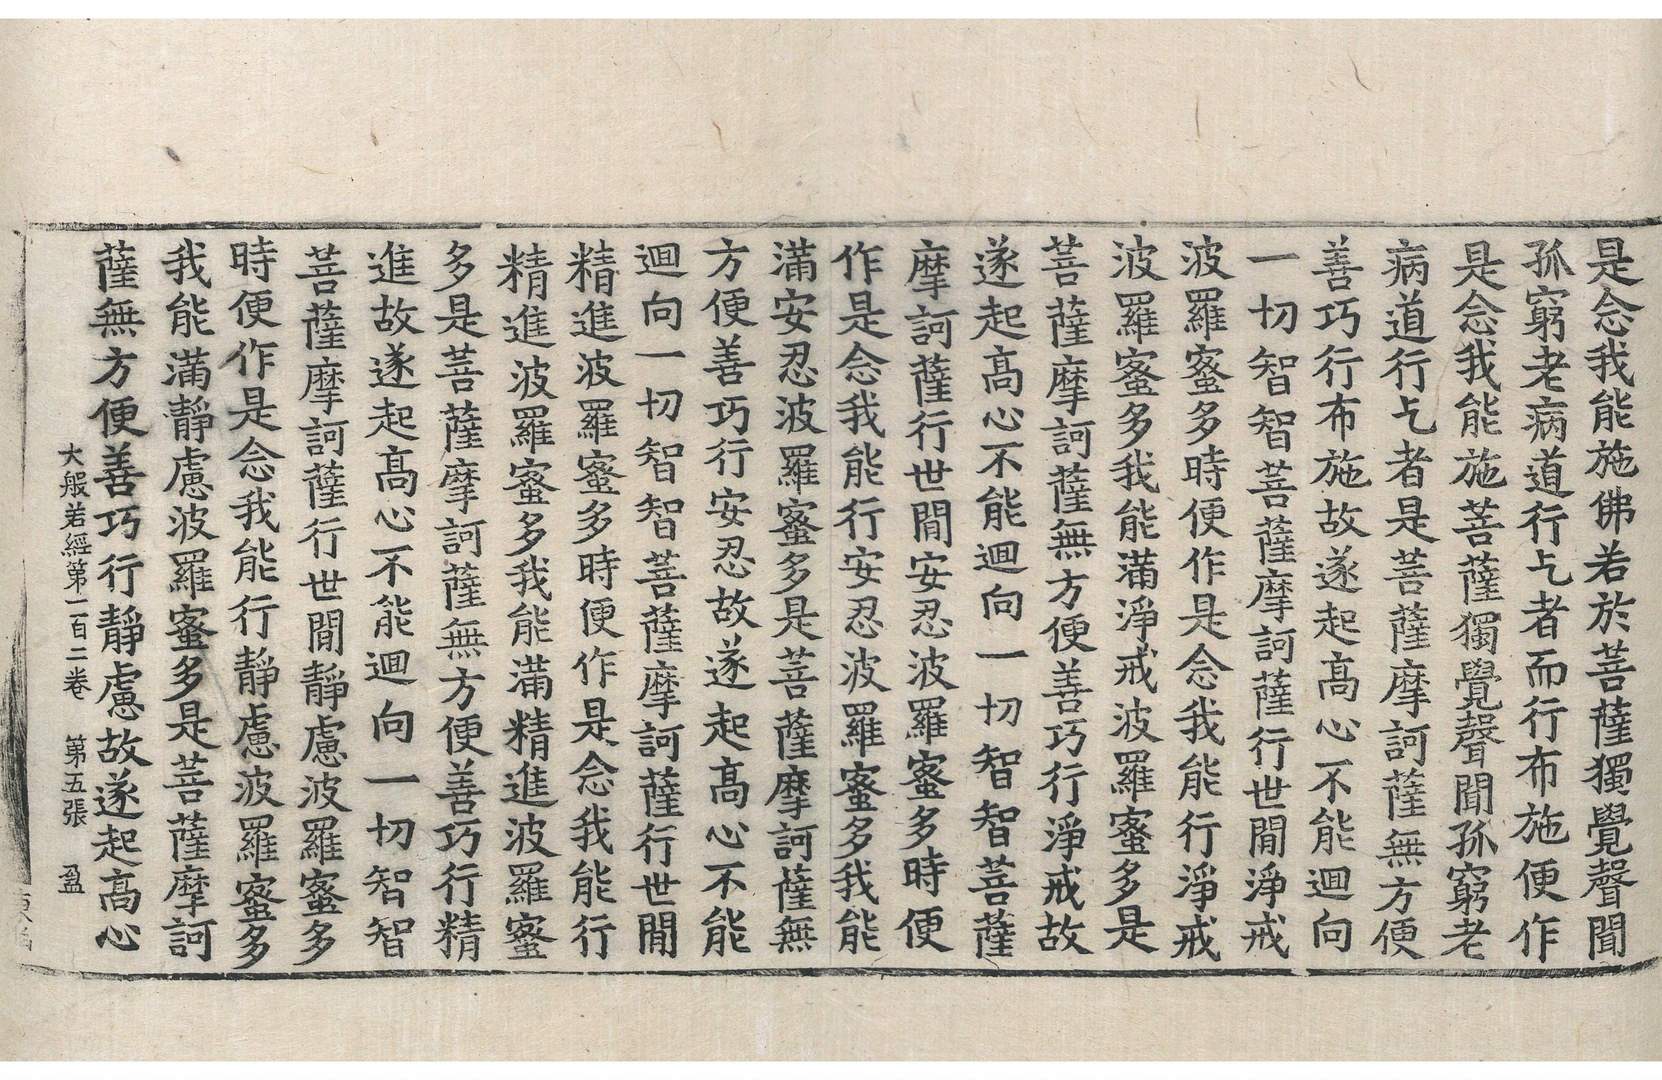 是念我能施佛若於菩薩獨覺聲聞
孤窮老病道行乞者而行布施便作
是念我能施菩薩獨覺聲聞孤窮老
病道行乞者是菩薩摩訶薩無方便
善巧行布施故遂起高心不能迴向
一切智智菩薩摩訶薩行世間淨戒
波羅蜜多時便作是念我能行淨戒
波羅蜜多我能滿淨戒波羅蜜多是
菩薩摩訶薩無方便善巧行淨戒故
遂起高心不能迴向一切智智菩薩
摩訶薩行世間安忍波羅蜜多時便
作是念我能行安忍波羅蜜多我能
滿安忍波羅蜜多是菩薩摩訶薩無
方便善巧行安忍故遂起高心不能
迴向一切智智菩薩摩訶薩行世間
精進波羅蜜多時便作是念我能行
精進波羅蜜多我能滿精進波羅蜜
多是菩薩摩訶薩無方便善巧行精
進故遂起高心不能迴向一切智智
菩薩摩訶薩行世間靜慮波羅蜜多
時便作是念我能行靜慮波羅蜜多
我能滿靜慮波羅蜜多是菩薩摩訶
薩無方便善巧行靜慮故遂起高心
大般若經第一百二卷 第五張 盈